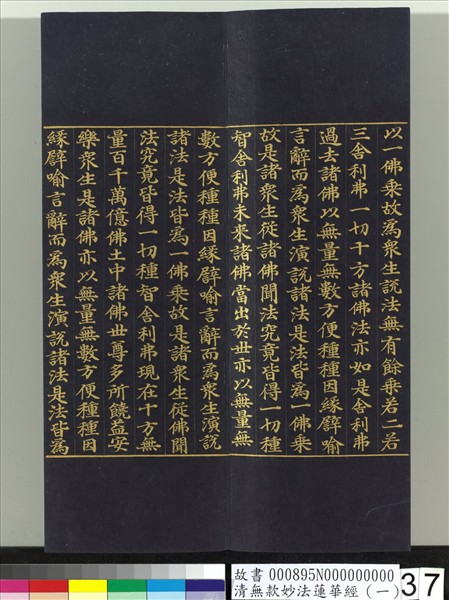 以一佛乘故為眾生說法無有餘乘若二若
三舍利弗一切十方諸佛法亦如是舍利弗
過去諸佛以無量無數方便種種因緣譬喻
言辭而為眾生演說諸法是法皆為一佛乘
故是諸眾生從諸佛聞法究竟皆得一切種
智舍利弗未來諸佛當出於世亦以無量無
數方便種種因緣譬喻言辭而為眾生演說
諸法是法皆為一佛乘故是諸眾生從佛聞
法究竟皆得一切種智舍利弗現在十方無
量百千萬億佛土中諸佛世尊多所饒益安
樂眾生是諸佛亦以無量無數方便種種因
緣譬喻言辭而為眾生演說諸法是法皆為
故書 000895N000000000
清無款妙法蓮華經(一)
37